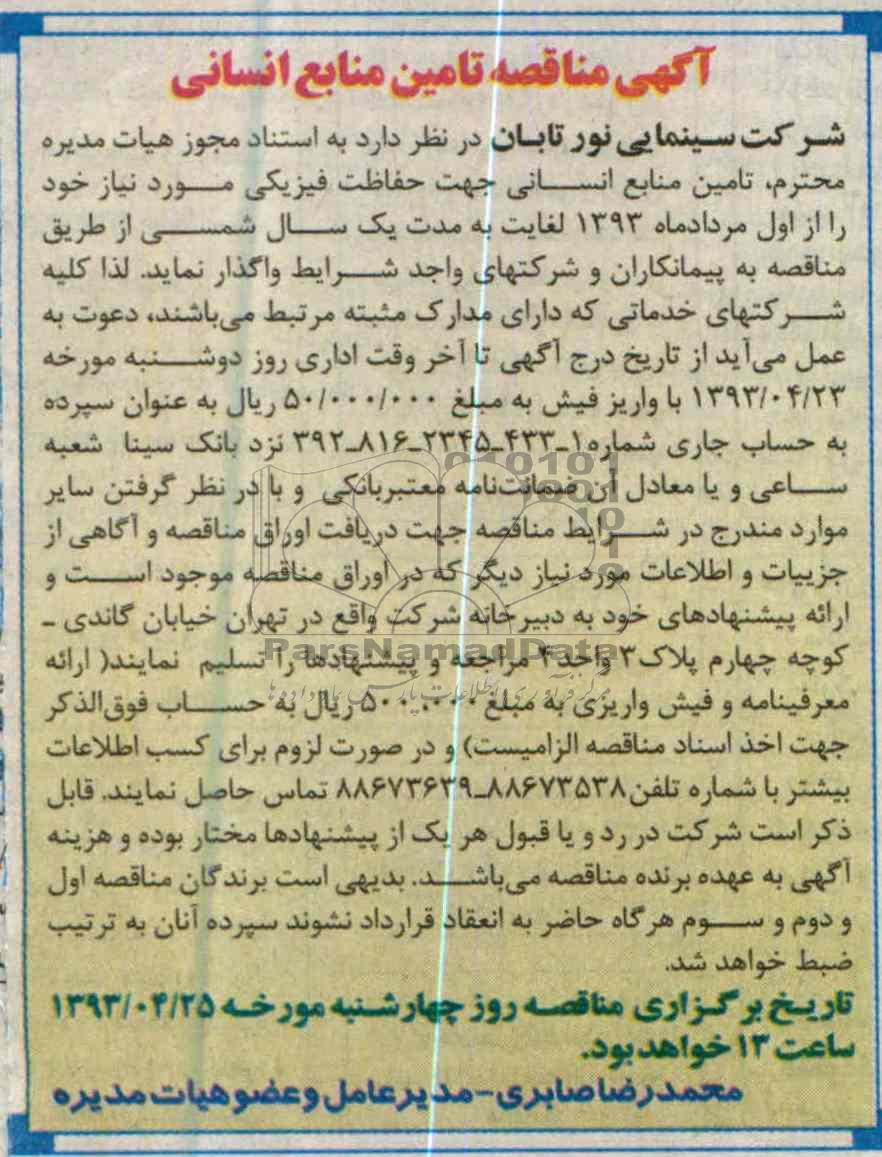 آگهی مناقصه تامین منابع انسانی
شرکت سینمایی نور تابان در نظر دارد به استناد مجوز هیات مدیره
محترم، تامین منابع انسانی جهت حفاظت فیزیکی مورد نیاز خود
را از اول مردادماه ۱۳۹۳ لغایت به مدت یک سال شمسی از طریق
مناقصه به پیمانکاران و شرکتهای واجد شرایط واگذار نماید. لذا کلیه
شرکتهای خدماتی که دارای مدارک مثبته مرتبط می‌باشند، دعوت به
عمل می‌آید از تاریخ درج آگهی تا آخر وقت اداری روز دوشنبه مورخه
۱۳۹۳/۰۴/۲۳ با واریز فیش به مبلغ ۵۰/۰۰۰/۰۰۰ ریال به عنوان سپرده
به حساب جاری شماره ۱_۴۳۳_۲۳۴۵_۸۱۶_۳۹۲ نزد بانک سینا شعبه
ساعی و یا معادل آن ضمانت‌نامه معتبربانکی و با در نظر گرفتن سایر
موارد مندرج در شرایط مناقصه جهت دریافت اوراق مناقصه و آگاهی از
جزییات و اطلاعات مورد نیاز دیگر که در اوراق مناقصه موجود است و
ارائه پیشنهادهای خود به دبیرخانه شرکت واقع در تهران خیابان گاندی -
کوچه چهارم پلاک ۳ واحد ۴ مراجعه و پیشنهادها را تسلیم نمایند( ارائه
معرفینامه و فیش واریزی به مبلغ ۵۰۰.۰۰۰ ریال به حساب فوق‌الذکر
جهت اخذ اسناد مناقصه الزامیست) و در صورت لزوم برای کسب اطلاعات
بیشتر با شماره تلفن ۸۸۶۷۳۵۳۸_۸۸۶۷۳۶۳۹ تماس حاصل نمایند. قابل
ذکر است شرکت در رد و یا قبول هر یک از پیشنهادها مختار بوده و هزینه
آگهی به عهده برنده مناقصه می‌باشد. بدیهی است برندگان مناقصه اول
و دوم و سوم هرگاه حاضر به انعقاد قرارداد نشوند سپرده آنان به ترتیب
ضبط خواهد شد.
تاریخ برگزاری مناقصه روز چهارشنبه مورخه ۱۳۹۳/۰۴/۲۵
ساعت ۱۳ خواهد بود.
محمدرضا صابری - مدیرعامل و عضو هیات مدیره
ParsNamadData